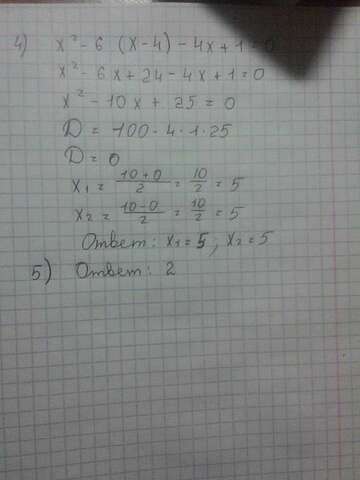 4) x² - 6 (x - 4) - 4x + 1 = 0
x² - 6x + 24 - 4x + 1 = 0
x² - 10x + 25 = 0
D = 100 - 4 · 1 · 25
D = 0
x₁ = \frac{10 + 0}{2} = \frac{10}{2} = 5
x₂ = \frac{10 - 0}{2} = \frac{10}{2} = 5
Ответ: x₁ = 5, x₂ = 5
5) Ответ: 2